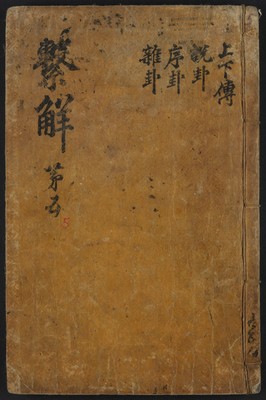 上下傳
說卦
序卦
雜卦
繫觧
茅五